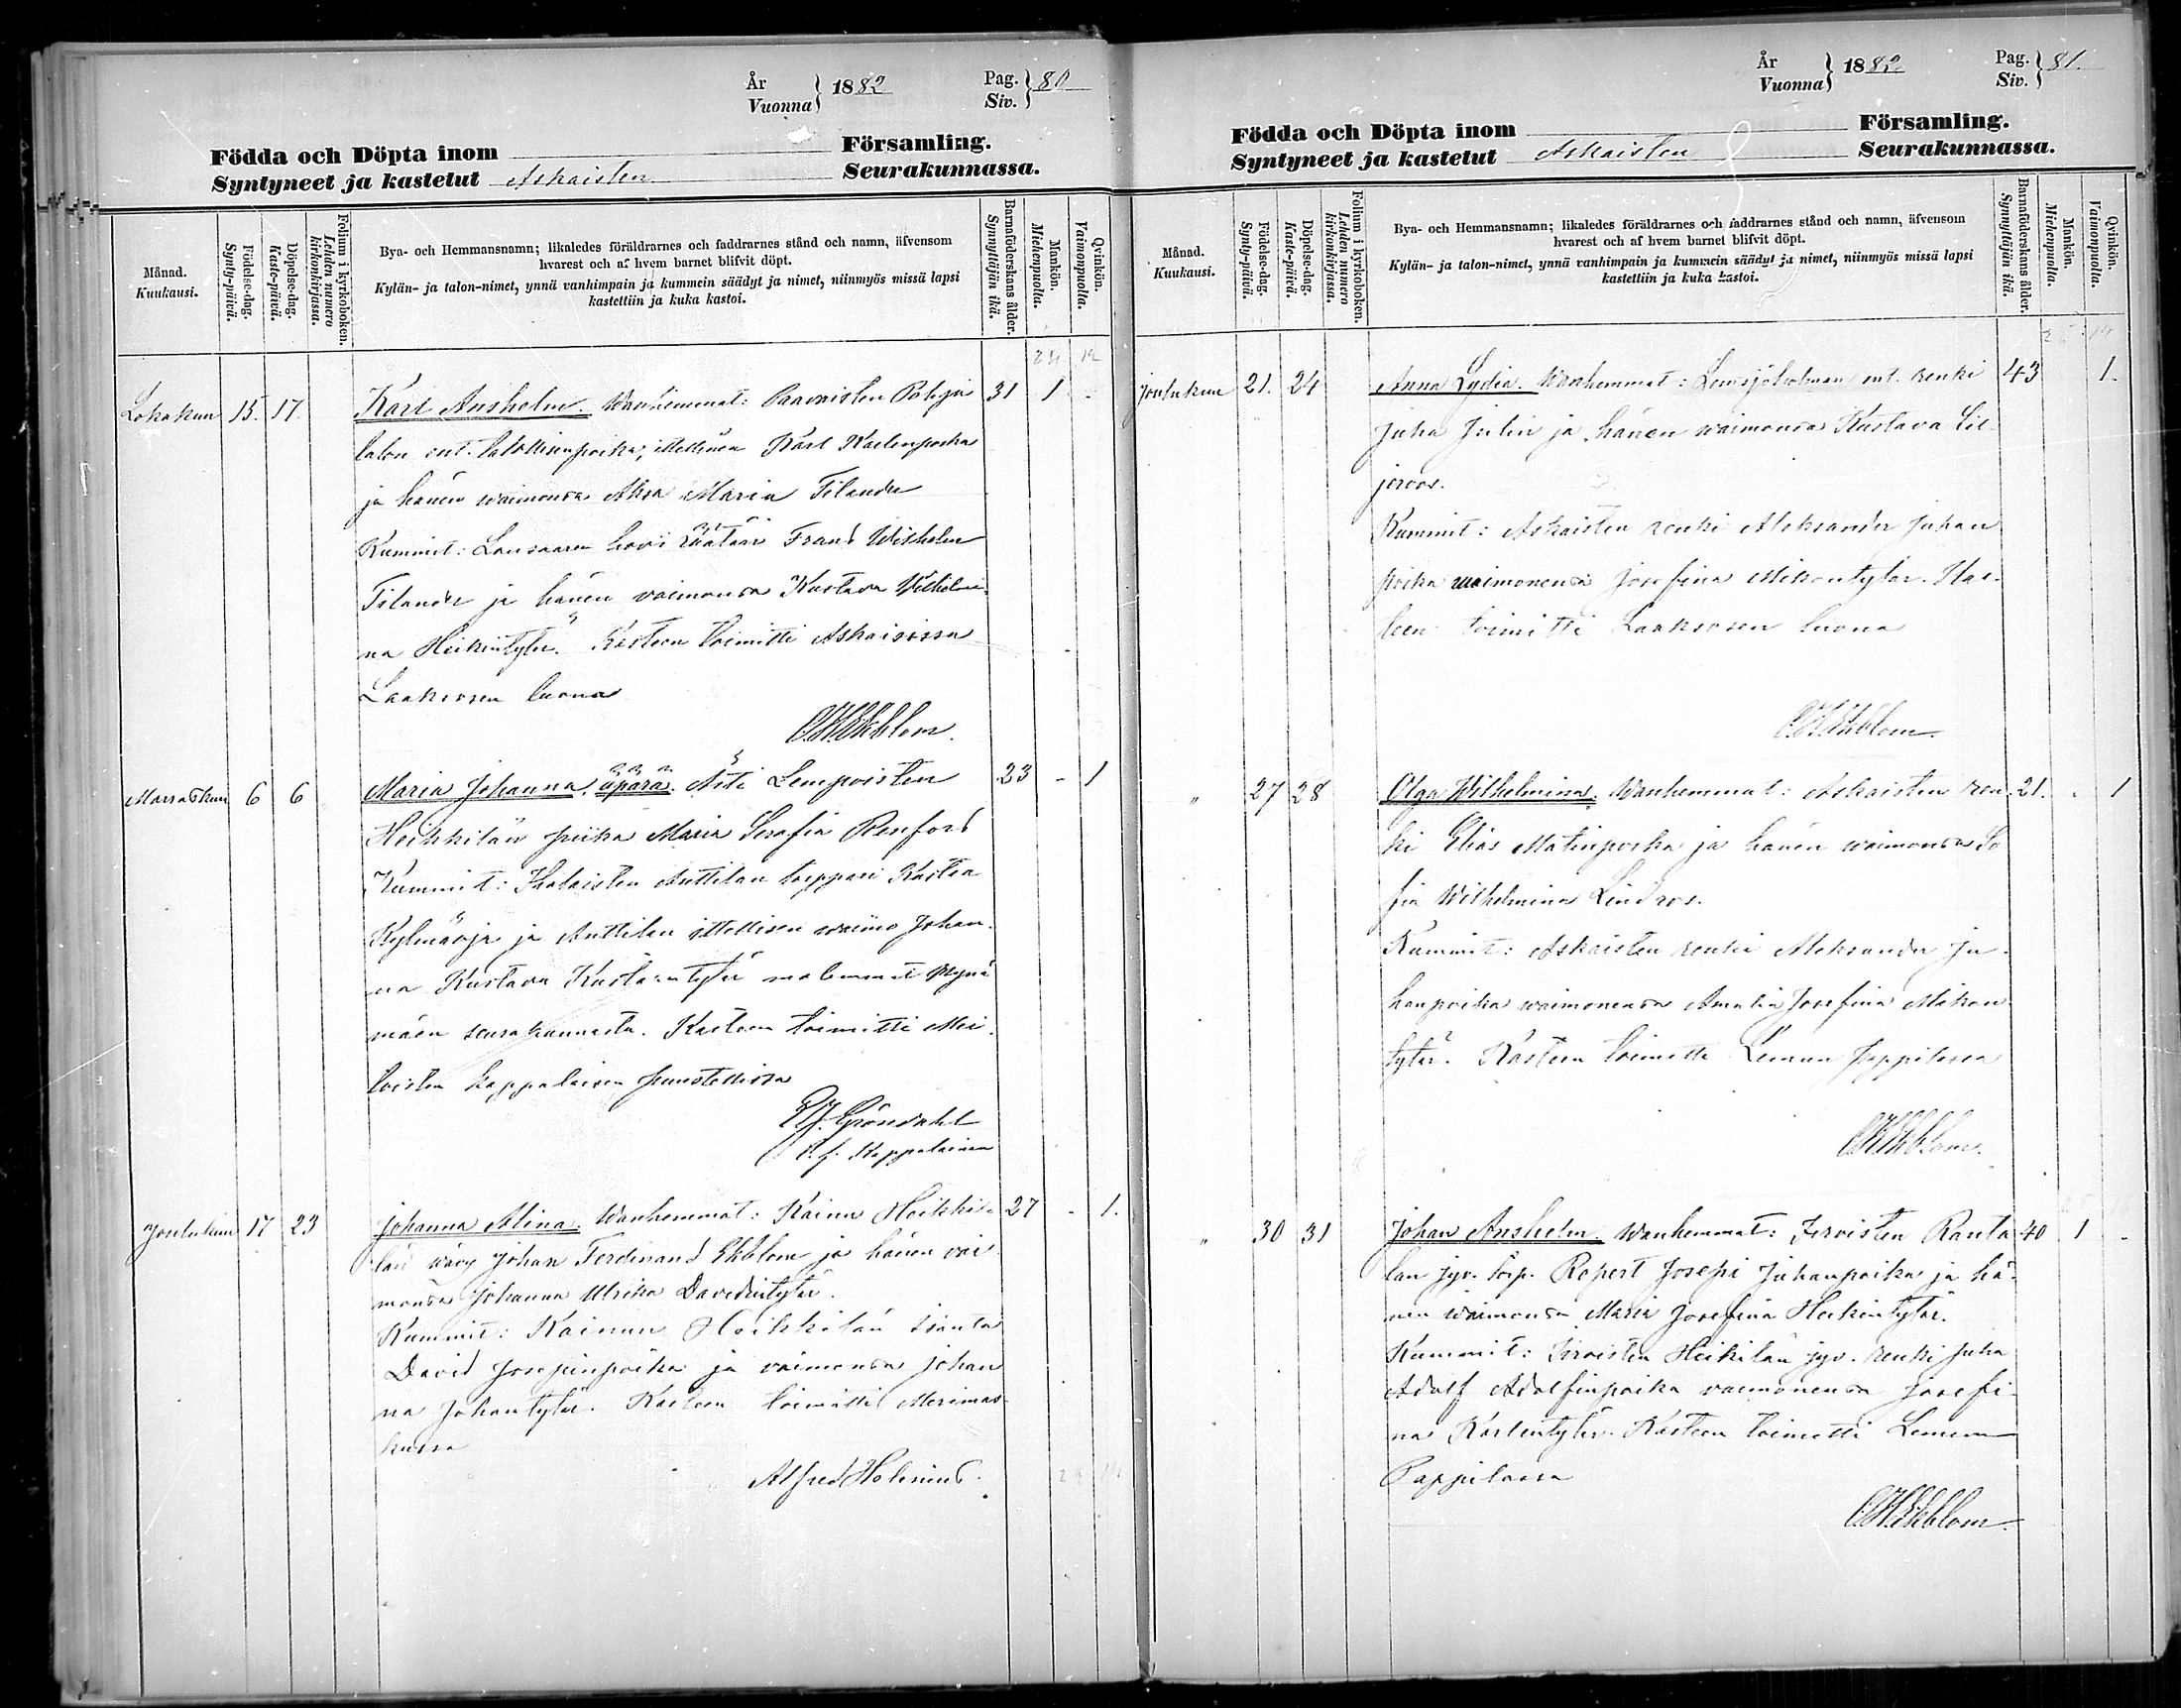 År
Vuonna } 1882 Pag.
Siv. } 80
Födda och Döpta inom Församling.
Syntyneet ja kastetut Askaisten Seurakunnassa.
Månad.
Kuukausi.
Födelse-dag.
Synty-päivä.
Döpelse-dag.
Kaste-päivä.
Folium i kyrkoboken.
Lehden numero
kirkonkirjassa.
Bya- och Hemmansnamn; likaledes föräldrarnes och faddrarnes stånd och namn, äfvensom
hvarest och af hvem barnet blifvit döpt.
Kylän- ja talon-nimet, ynnä vanhimpain ja kummein säädyt ja nimet, niinmyös missä lapsi
kastettiin ja kuka kastoi.
Barnaföderskans ålder.
Synnyttäjän ikä.
Mankön.
Miehenpuolta.
Qvinkön.
Vaimonpuolta.
Lokakun 15. 17. Karl Anshelm. Wanhemmat: Paavaisten Pohja 31 1 -
talon ent. talollisenpoika, itellinen Karl Kaarlenpoika
ja hänen waimonsa Maria Filander
Kummit: Lousaaren hovi räätäri Frans Wilhelm
Filander ja hänen vaimonsa Kustava Wilhelmi-
na Heikintytär. Kasteen toimitti Askaisissa
Laaksosen luona
C.H.Ekblom.
Marraskun 6 6 Maria Johanna, äpärä. Äiti Lempoisten 23 - 1
Heikkilän piika Maria Serafia Renfors
Kummit: Anttilan torppari Kustaa
Kylmäoja ja Anttilan ittellisen waimo Johan-
na Kustava Kustaantytär molemmat Mynä
mäen seurakunnasta. Kasteen toimitti Mie-
toisten kappalaisen puustellissa
Gröndahl
Kappalainen
Joulukun 17 23 Johanna Alina. Wanhemmat: Kainu Heikki- 27 - 1.
län wävy Johan Ferdinand Ekblom ja hänen vai
monsa Johanna Ulrika Davidintytär.
Kummit: Kainun Heikkilän isäntä
David Josepinpoika ja vaimonsa Johan
na Johantytär. Kasteen toimitti Merimas-
kussa
Alfred Helenius.
År
Vuonna } 1882 Pag.
Siv. } 81.
Födda och Döpta inom Församling.
Syntyneet ja kastetut Askaisten Seurakunnassa.
Månad.
Kuukausi.
Födelse-dag.
Synty-päivä.
Döpelse-dag.
Kaste-päivä.
Folium i kyrkoboken.
Lehden numero
kirkonkirjassa.
Bya- och Hemmansnamn; likaledes föräldrarnes och faddrarnes stånd och namn, äfvensom
hvarest och af hvem barnet blifvit döpt.
Kylän- ja talon-nimet, ynnä vanhimpain ja kummein säädyt ja nimet, niinmyös missä lapsi
kastettiin ja kuka kastoi.
Barnaföderskans ålder.
Synnyttäjän ikä.
Mankön.
Miehenpuolta.
Qvinkön.
Vaimonpuolta.
Joulukun 21. 24 Anna Lydia. Wanhemmat: ent. renki 43 1.
Juha Julin ja hänen waimonsa Kustava Lil-
jeroos.
Kummit: Askaisten renki Aleksander Juhan
poika waimonensa Josefina Mikontytär. Kas-
teen toimitti Laaksosen luona
C.H.Ekblom.
" 27 28 Olga Wilhelmina. Wanhemmat: Askaisten ren 21. - 1
ki Elias Matinpoika ja hänen waimonsa So
fia Wilhelmina Lindros.
Kummit: Askaisten renki Aleksander Ju-
hanpoika waimonensa Amalia Josefina Mikon
tytär. Kasteen toimitti Lemun Pappilassa
C.H.Ekblom.
" 30 31 Johan Anshelm. Wanhemmat: Iivoisten Ranta 40 1 -
lan jyv. torp. Ropert Josepi Juhanpoika ja hä-
nen waimonsa Maria Josefina Heikintytär.
Kummit: Heikilän jyv. renki Juha
Adolf Adolfinpoika vaimonensa Josefi-
na Karlentytär. Kasteen toimitti Lemun
Pappilassa
C.H.Ekblom.